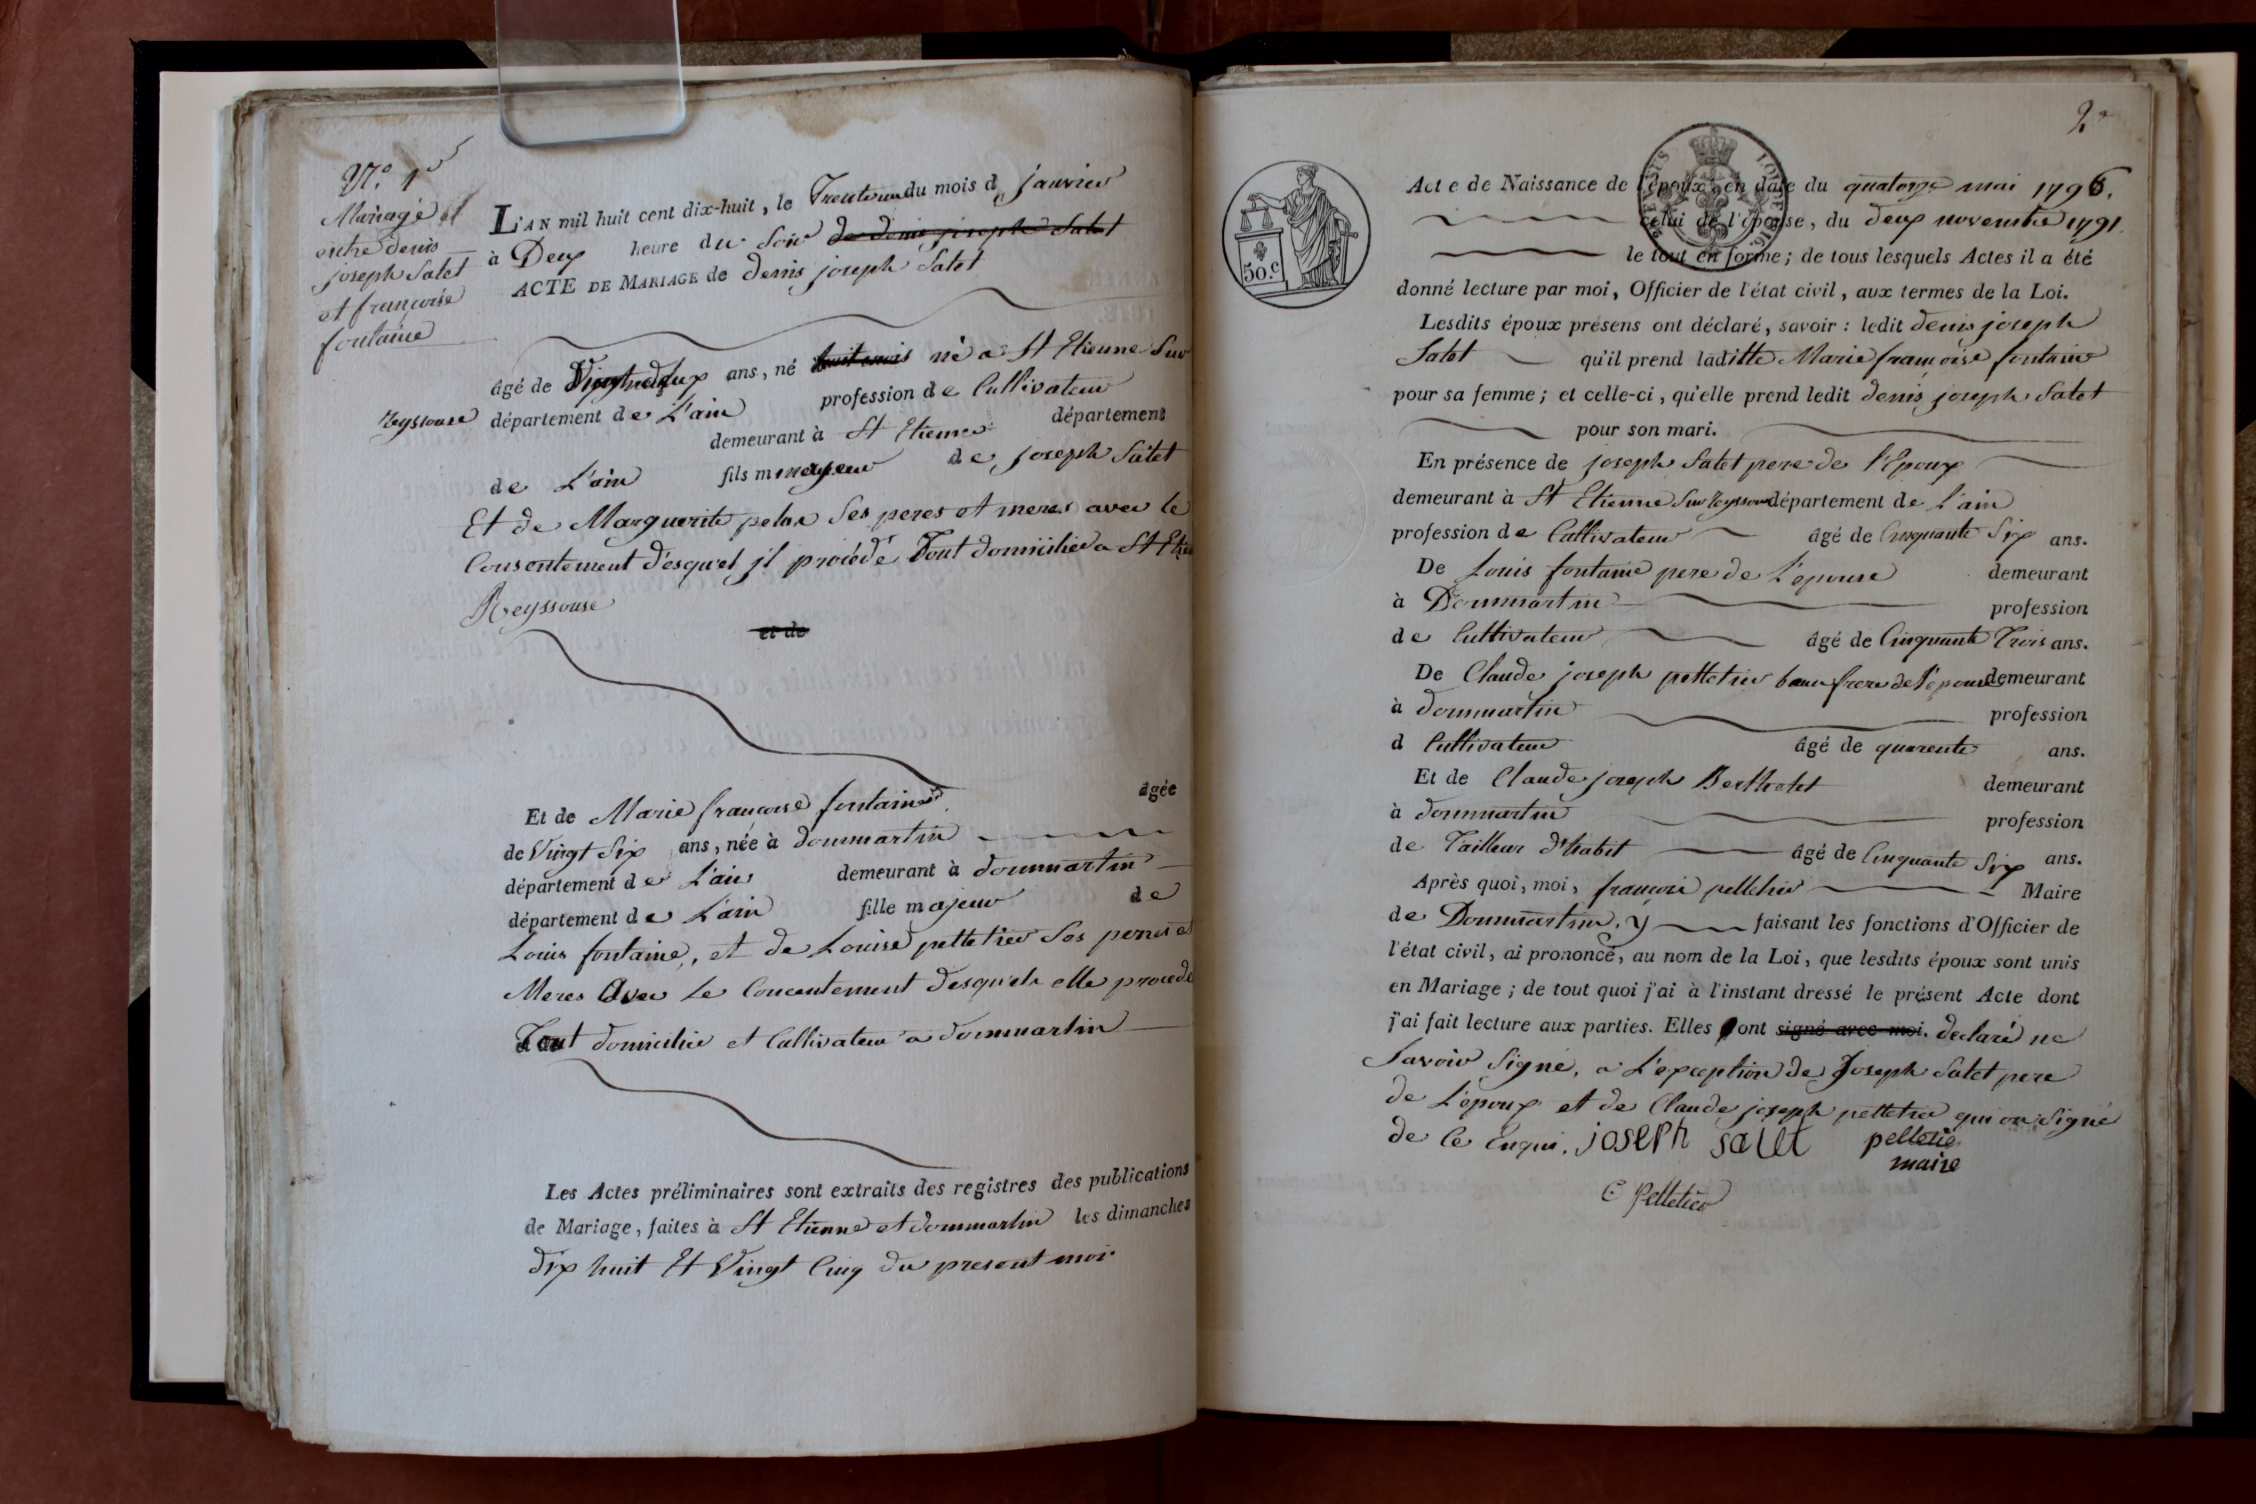 N.° 1
Mariage
entre denis
joseph Salet
et françoise
fontaine
L'AN mil huit cent dix-huit, le Trente un du mois de janvier
à Deux heure du Soir de denis joseph Salet
ACTE DE MARIAGE de denis joseph Salet
âgé de Vingt deux ans, né né a St Etienne Sur
Reyssouse département de L'ain profession de Cultivateur
demeurant à St Etienne département
de L'ain fils mineur de joseph Salet
Et de Marguerite pelax Ses peres et meres avec le
Consentement d'esquel jl procéde Tout domicilié a St Etien
Reyssouse
et de
Et de Marie françoise fontaine âgée
de Vingt Six ans, née à dommartin
département de L'ain demeurant à dommartin
département de L'ain fille majeur de
Louis fontaine, et de Louise pelletier Ses peres et
Meres Avec Le Concentement desquels elle procede
Tout domicilie et Cultivateur a dommartin
Les Actes préliminaires sont extraits des registres des publications
de Mariage, faites à St Etienne et dommartin les dimanches
dix huit Et Vingt Cinq du present moi
2
50.c
Acte de Naissance de l'époux, en date du quatorze mai 1796.
celui de l'épouse, du deux novembre 1791.
le tout en forme; de tous lesquels Actes il a été
donné lecture par moi, Officier de l'état civil, aux termes de la Loi.
Lesdits époux présens ont déclaré, savoir: ledit denis joseph
Salet qu'il prend laditte Marie françoise fontaine
pour sa femme; et celle-ci, qu'elle prend ledit denis joseph Salet
pour son mari.
En présence de joseph Salet pere de l'Epoux
demeurant à St Etienne Sur Reyssouse département de L'ain
profession de Cultivateur âgé de Cinquante Six ans.
De Louis fontaine pere de L'epouse demeurant
à Dommartin profession
de Cultivateur âgé de Cinquante Trois ans.
De Claude joseph pelletier beau frere de l'epouse demeurant
à dommartin profession
d Cultivateur âgé de quarente ans.
Et de Claude joseph Berthelet demeurant
à dommartin profession
de Tailleur d'habit âgé de Cinquante Six ans.
Après quoi, moi, françois pelletier Maire
de Dommartin, y faisant les fonctions d'Officier de
l'état civil, ai prononcé, au nom de la Loi, que lesdits époux sont unis
en Mariage; de tout quoi j'ai à l'instant dressé le présent Acte dont
j'ai fait lecture aux parties. Elles ont signé avec moi. declaré ne
Savoir Signé, a L'exception de Joseph Salet pere
de L'époux et de Claude joseph pelletier qui on Signé
de Ce Enqui. joseph salet pelletie
maire
C Pelletier